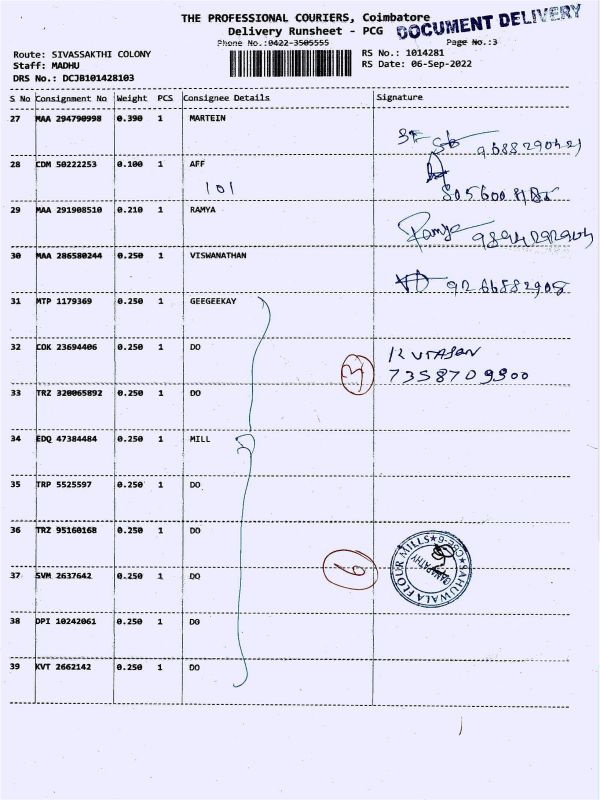 THE PROFESSIONAL COURIERS, Coimbatore
DOCUMENT DELIVERY
Delivery Runsheet - PCG
Phone No.:0422-3505555
Page No.:3
Route: SIVASSAKTHI COLONY
RS No.: 1014281
Staff: MADHU
RS Date: 06-Sep-2022
DRS No.: DCJB101428103
S No Consignment No Weight PCS Consignee Details Signature
27 MAA 294790998 0.390 1 MARTEIN
28 CDM 50222253 0.100 1 AFF
101
29 MAA 291908510 0.210 1 RAMYA
Ramya
30 MAA 286580244 0.250 1 VISWANATHAN
31 MTP 1179369 0.250 1 GEEGEEKAY
32 COK 23694406 0.250 1 DO
3
7358709900
33 TRZ 320065892 0.250 1 DO
34 EDQ 47384484 0.250 1 MILL
35 TRP 5525597 0.250 1 DO
36 TRZ 95160168 0.250 1 DO
37 SVM 2637642 0.250 1 DO
6
SAHUWALA FLOUR MILLS
38 DPI 10242061 0.250 1 DO
39 KVT 2662142 0.250 1 DO